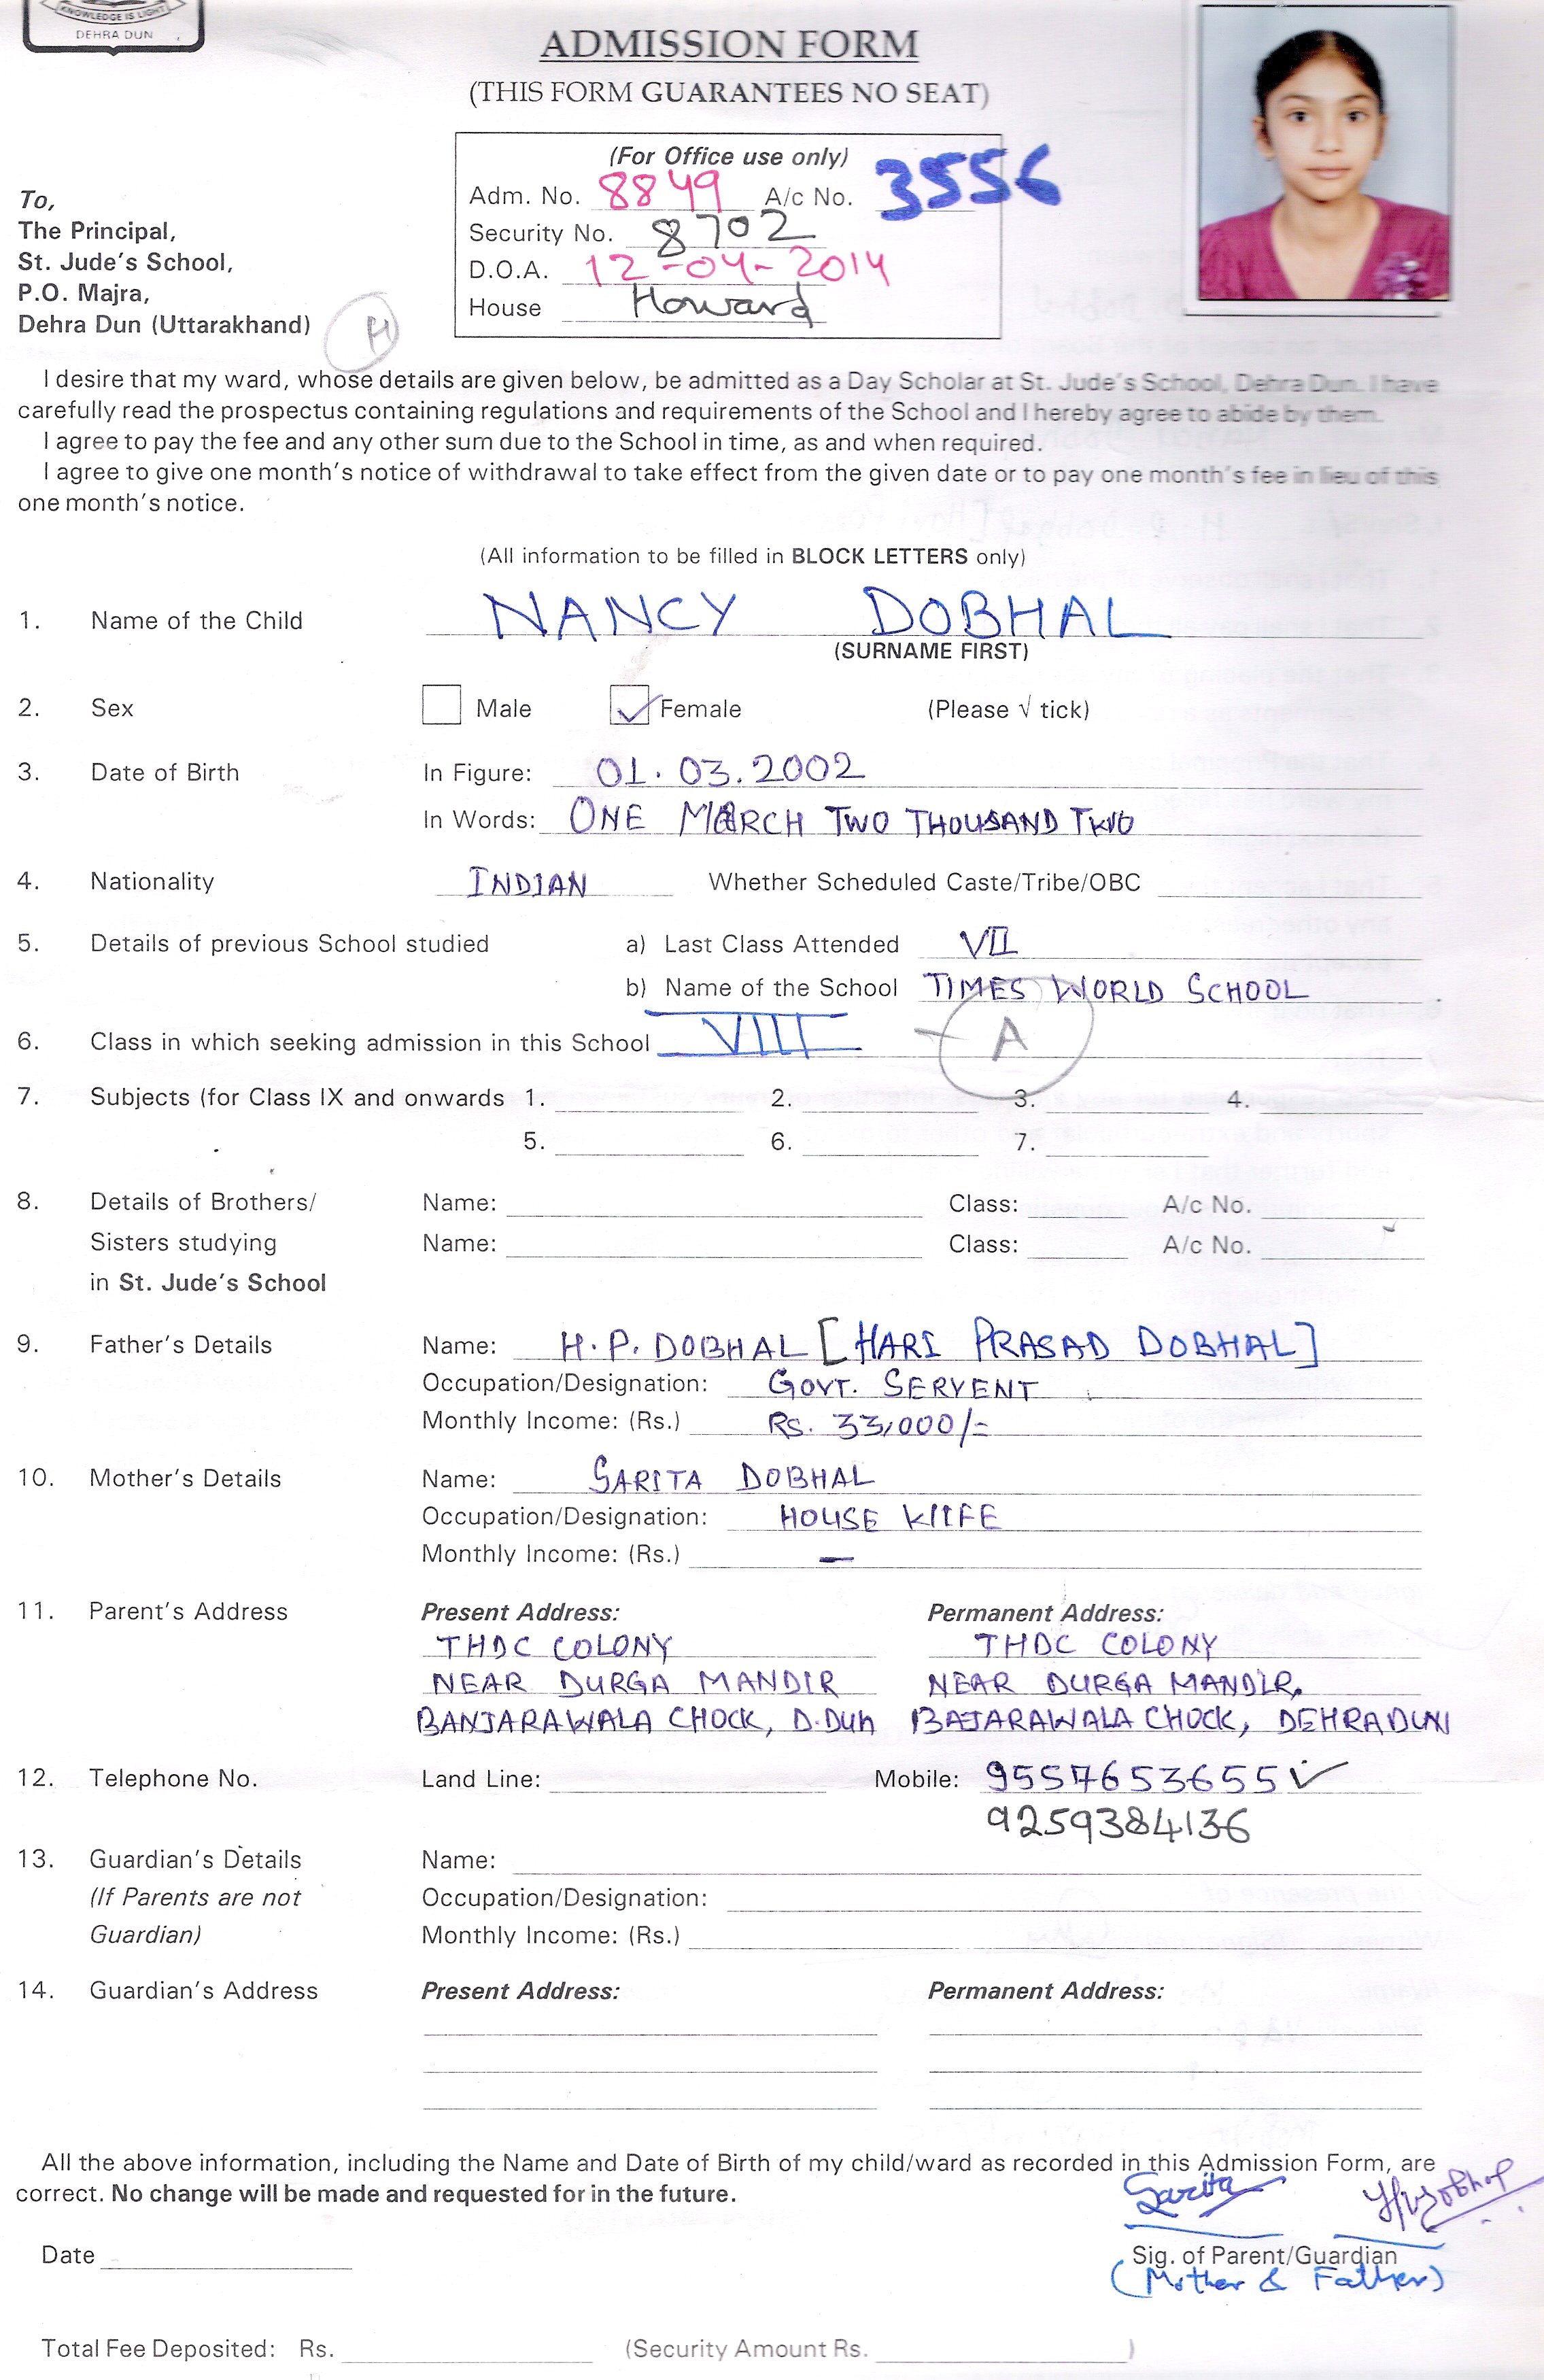 KNOWLEDGE IS LIGHT
DEHRA DUN
ADMISSION FORM
(THIS FORM GUARANTEES NO SEAT)
(For Office use only)
Adm. No. 8849 A/c No. 3556
Security No. 8702
D.O.A. 12-04-2014
House Howard
To,
The Principal,
St. Jude's School,
P.O. Majra,
Dehra Dun (Uttarakhand)
H
I desire that my ward, whose details are given below, be admitted as a Day Scholar at St. Jude's School, Dehra Dun. I have
carefully read the prospectus containing regulations and requirements of the School and I hereby agree to abide by them.
I agree to pay the fee and any other sum due to the School in time, as and when required.
I agree to give one month's notice of withdrawal to take effect from the given date or to pay one month's fee in lieu of this
one month's notice.
(All information to be filled in BLOCK LETTERS only)
1. Name of the Child NANCY DOBHAL
(SURNAME FIRST)
2. Sex Male ✓ Female (Please √ tick)
3. Date of Birth In Figure: 01.03.2002
In Words: ONE MARCH TWO THOUSAND TWO
4. Nationality INDIAN Whether Scheduled Caste/Tribe/OBC
5. Details of previous School studied a) Last Class Attended VII
b) Name of the School TIMES WORLD SCHOOL
6. Class in which seeking admission in this School VIII - A
7. Subjects (for Class IX and onwards 1. 2. 3. 4.
5. 6. 7.
8. Details of Brothers/ Name: Class: A/c No.
Sisters studying Name: Class: A/c No.
in St. Jude's School
9. Father's Details Name: H.P. DOBHAL [HARI PRASAD DOBHAL]
Occupation/Designation: GOVT. SERVENT
Monthly Income: (Rs.) Rs. 33,000/=
10. Mother's Details Name: SARITA DOBHAL
Occupation/Designation: HOUSE WIFE
Monthly Income: (Rs.) —
11. Parent's Address Present Address: Permanent Address:
THDC COLONY THDC COLONY
NEAR DURGA MANDIR NEAR DURGA MANDIR,
BANJARAWALA CHOCK, D.Dun BAJARAWALA CHOCK, DEHRADUN
12. Telephone No. Land Line: Mobile: 9557653655 ✓
9259384136
13. Guardian's Details Name:
(If Parents are not Occupation/Designation:
Guardian) Monthly Income: (Rs.)
14. Guardian's Address Present Address: Permanent Address:
All the above information, including the Name and Date of Birth of my child/ward as recorded in this Admission Form, are
correct. No change will be made and requested for in the future.
Sarita HPDobhal
Date Sig. of Parent/Guardian
(Mother & Father)
Total Fee Deposited: Rs. (Security Amount Rs. )